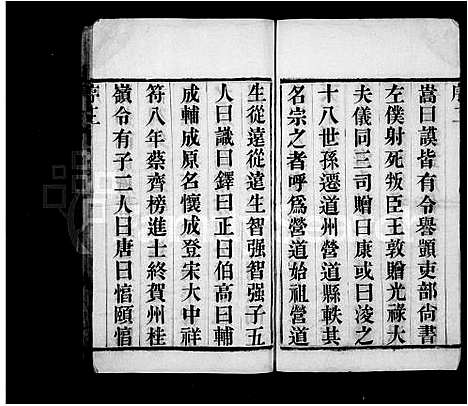 嵩曰謨皆有令譽顗吏部尙書
左僕射死叛臣王敦贈光祿大
夫儀同三司贈曰康或曰浚之
十八世孫遷道州營道縣軼其
名宗之者呼爲營道始祖營道
生從遠從遠生智强智强子五
人曰識曰鐸曰正曰伯高曰輔
成輔成原名懷成登宋大中祥
符八年蔡齊榜進士終賀州桂
嶺令有子二人曰唐曰惇頤惇